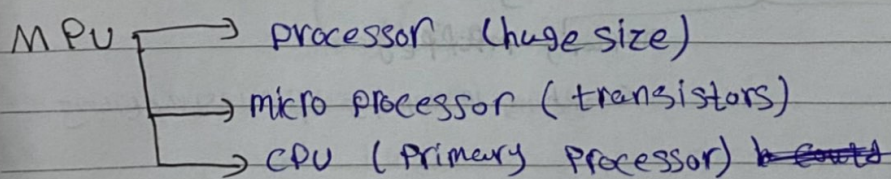 MPU → processor (huge size)
→ micro processor (transistors)
→ CPU (primary processor)